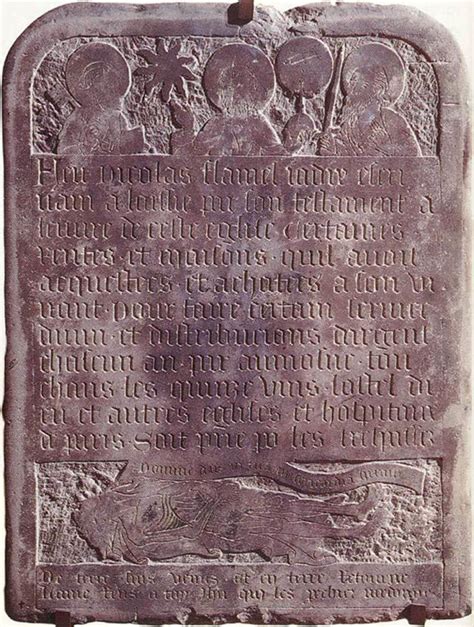 Feu nicolas flamel iadis escri
uain a laissie par son testament a
leuure de ceste eglise certaines
rentes · et maisons · quil auoit
acquestees · et achatees a son vi
uant · pour faire certain seruice
diuin · et distribucions dargent
chascun an · par aumosne · tou
chans · les quinze vins · lostel di
eu · et autres eglises · et hospitaux
a paris · Soit prie po les trespassez
Domine deus in tua misericordia speraui
De terre suis venus et en terre retourne
Lame rens a toy Jhu qui les pechiez pardonne